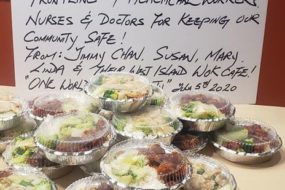 FRONTLINE & HEALTHCARE WORKERS,
NURSES & DOCTORS FOR KEEPING OUR
COMMUNITY SAFE!
FROM: JIMMY CHAN, SUSAN, MARY,
LINDA & THEIR WEST ISLAND WOK CAFE!
"ONE WORLD 5TH 2020